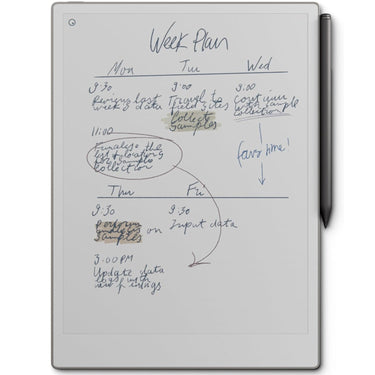 Week Plan
Mon Tue Wed
9:30
Review last
week's data
11:00
Finalise the
list of locations
for sample
collection
9:00
Travel to
field sites
Collect
samples
9:00
Continue
with sample
collection
favo time!
Thu Fri
9:30
Perform
samples on
3:00PM
Update data
logs with
new findings
9:30
Input data